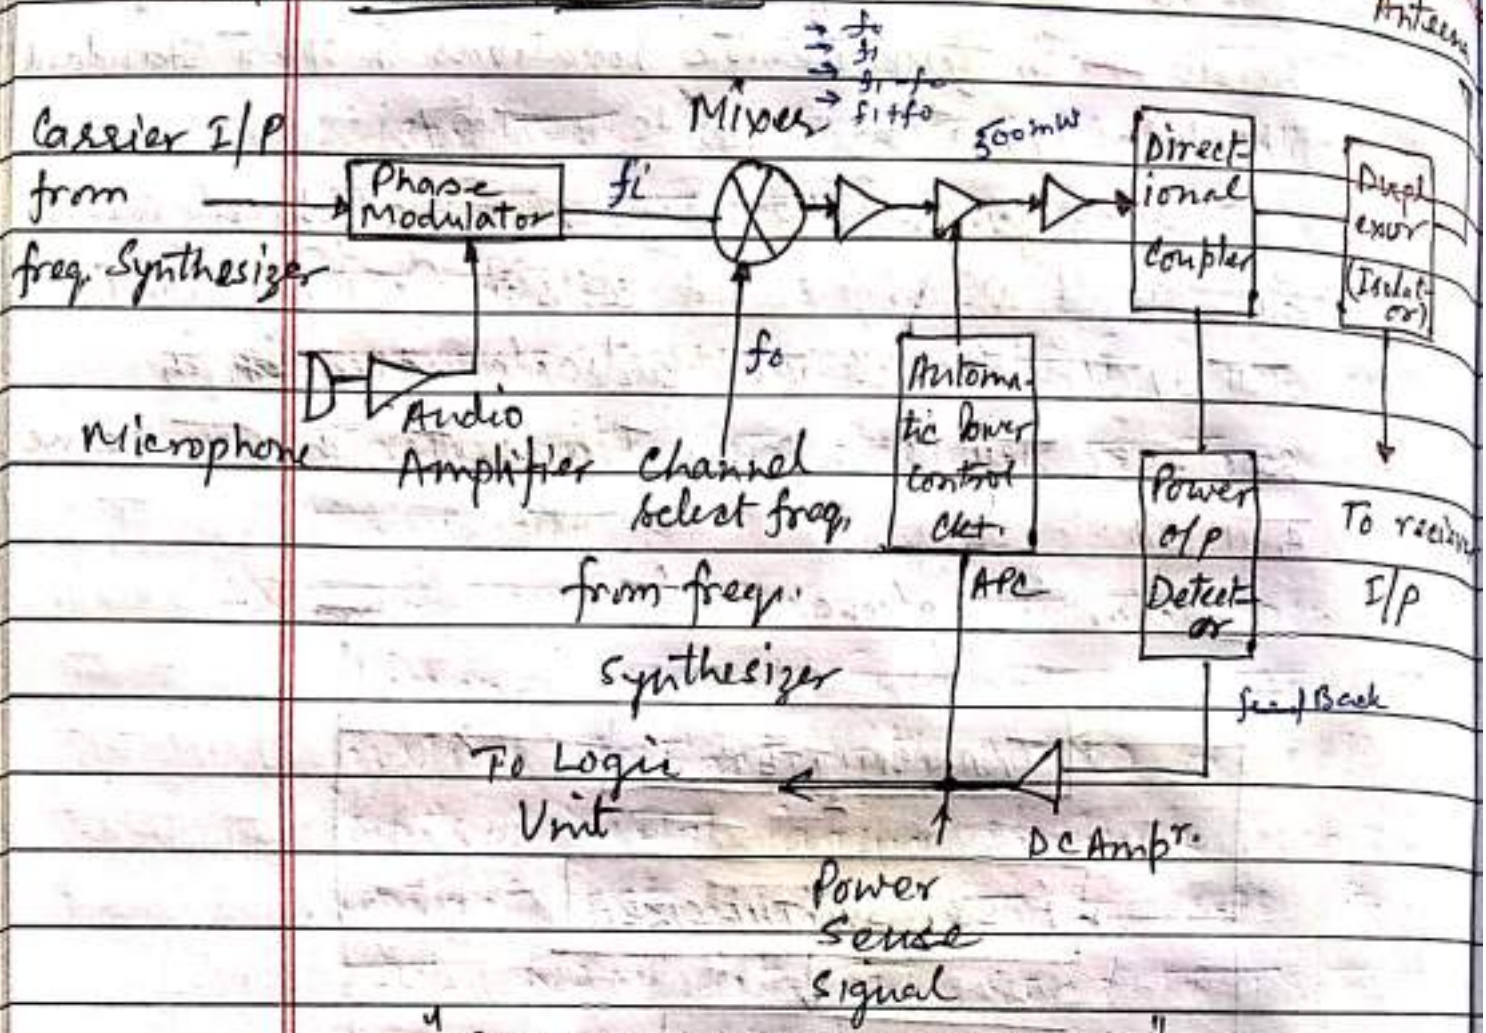 Antenna
→ f0
→ f1
→ f1-f0
→ f1+f0
Mixer
500mW
Carrier I/P
from
freq. Synthesizer
Phase
Modulator
fi
Direct-
ional
Coupler
Dupl
exur
(Isolat-
or)
Microphone
Audio
Amplifier
fo
Channel
select freq.
from freq.
synthesizer
Automa-
tic Power
control
Ckt.
APC
Power
o/p
Detect-
or
To reciever
I/P
feed Back
To Logic
Unit
DC Ampr.
Power
Sense
Signal